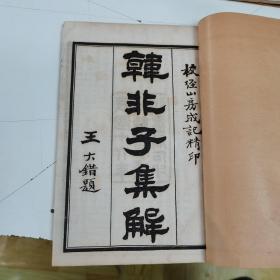 校經山房成記精印
韓非子集解
王大錯題